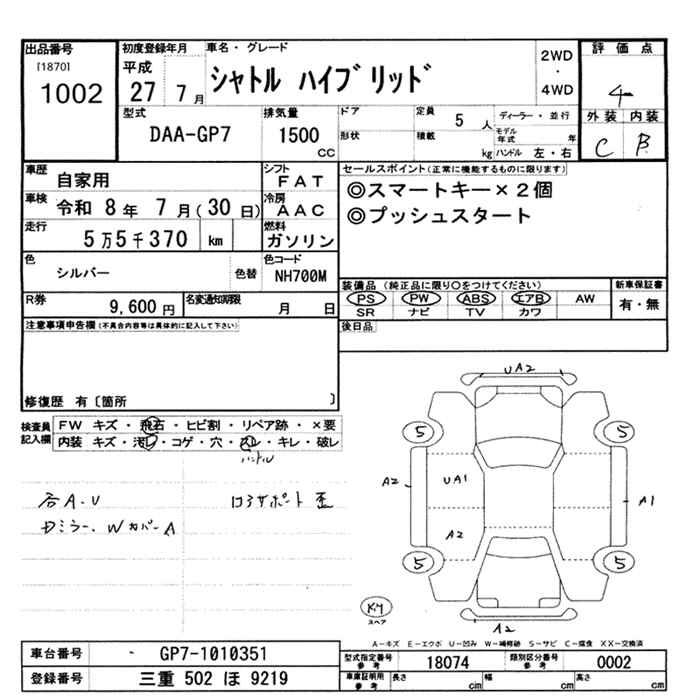 出品番号
[1870]
1002
初度登録年月
平成
27 7 月
車名・グレード
シャトル ハイブリッド
2WD
・
4WD
評価点
4
外装 内装
C B
型式
DAA-GP7
排気量
1500
CC
ドア
形状
定員
5 人
積載
kg
ディーラー・並行
モデル年式 年
ハンドル 左・右
車歴
自家用
シフト
FAT
車検
令和 8年 7月(30日)
冷房
AAC
走行
5万5千370 km
燃料
ガソリン
色
シルバー
色替
色コード
NH700M
R券
9,600 円
名変通知期限
月 日
セールスポイント(正常に機能するものに限ります)
◎スマートキー×2個
◎プッシュスタート
装備品 (純正品に限り○をつけてください)
PS PW ABS エアB AW
SR ナビ TV カワ
新車保証書
有・無
後日品
注意事項申告欄(不具合内容等は具体的に記入して下さい)
修復歴 有〔箇所 〕
検査員
記入欄
FW キズ・飛石・ヒビ割・リペア跡・×要
内装 キズ・汚れ・コゲ・穴・スレ・キレ・破レ
ハンドル
各A・U
コアサポート歪
ドミラー、Wカバー A
UA2
5
5
A2
UA1
A1
A2
5
5
スペア
A2
A-キズ E-エクボ U-凹み W-補修跡 S-サビ C-腐食 XX-交換済
車台番号
GP7-1010351
登録番号
三重 502 ほ 9219
型式指定番号
参考
18074
類別区分番号
参考
0002
車庫証明用
参考
長さ cm
幅 cm
高さ cm